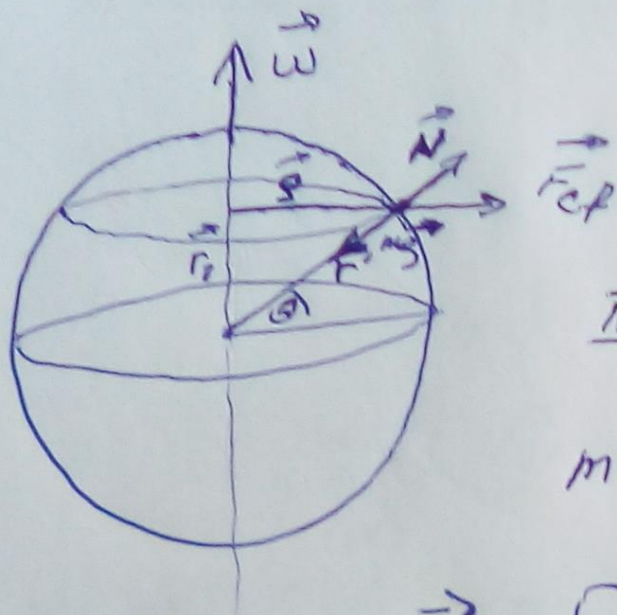 ω⃗
N⃗
ρ⃗
F⃗cf
r⃗₁
r
mg⃗
θ
m